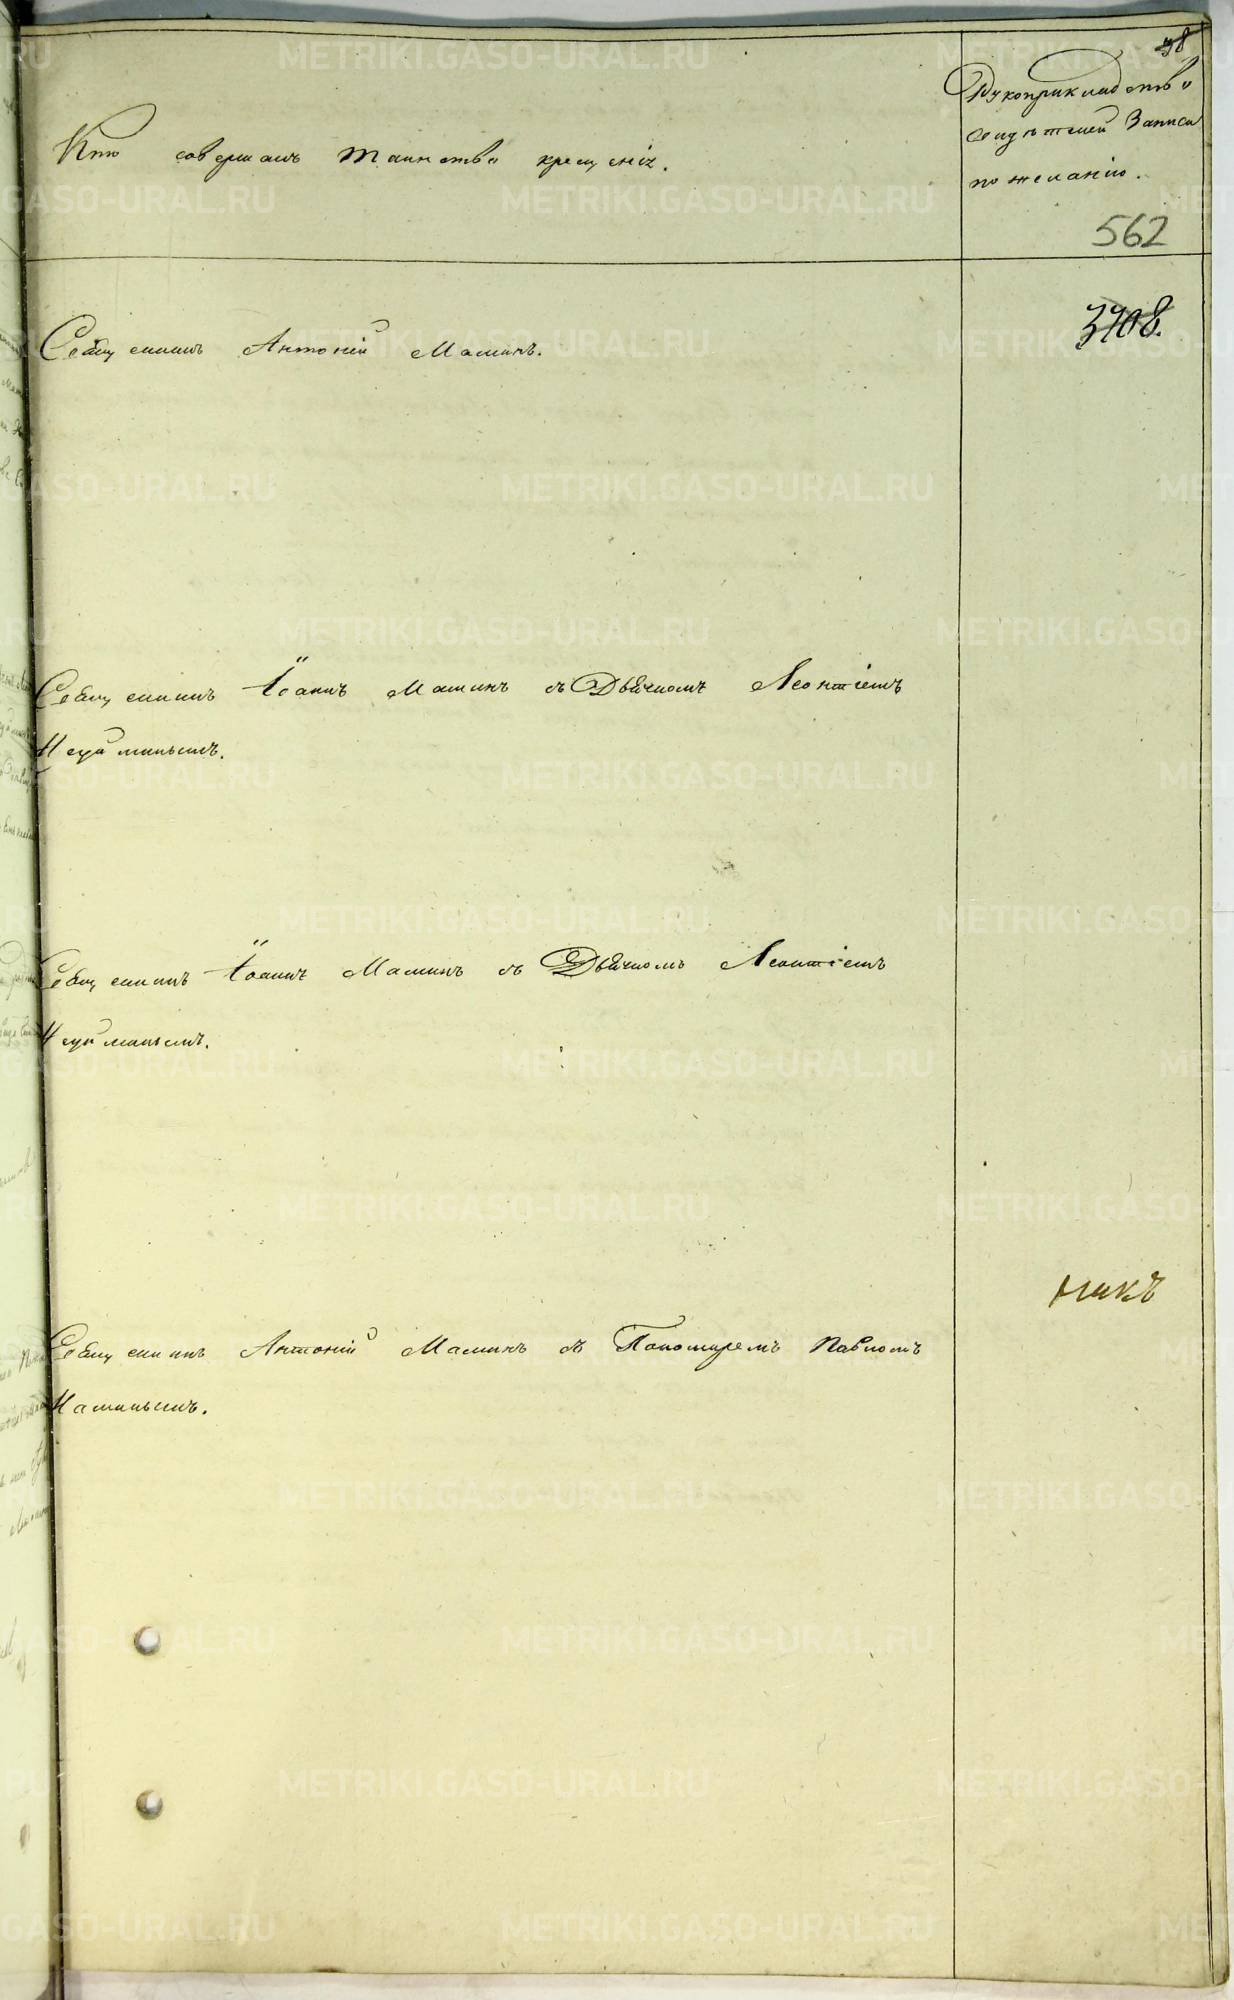 38
Кто совершалъ таинство крещенія.
Рукоприкладство
свидѣтелей записи
по желанію.
562
3908.
Священникъ Антоній Маминъ.
Священникъ Іоаннъ Маминъ съ Дьячкомъ Леонтіемъ
Неуйминымъ.
Священникъ Іоаннъ Маминъ съ Дьячкомъ Леонтіемъ
Неуйминымъ.
никъ
Священникъ Антоній Маминъ съ Пономаремъ Павломъ
Маминымъ.
METRIKI.GASO-URAL.RU